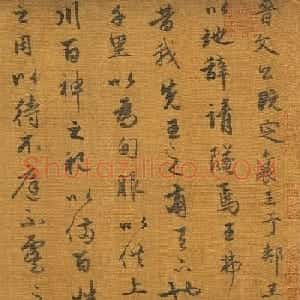 晉文公既定襄王于郟王
以地辭請隧焉王弗
昔我先王之有天下也
千里以為甸服以供上
川百神之祀以備百姓
之用以待不庭不虞之